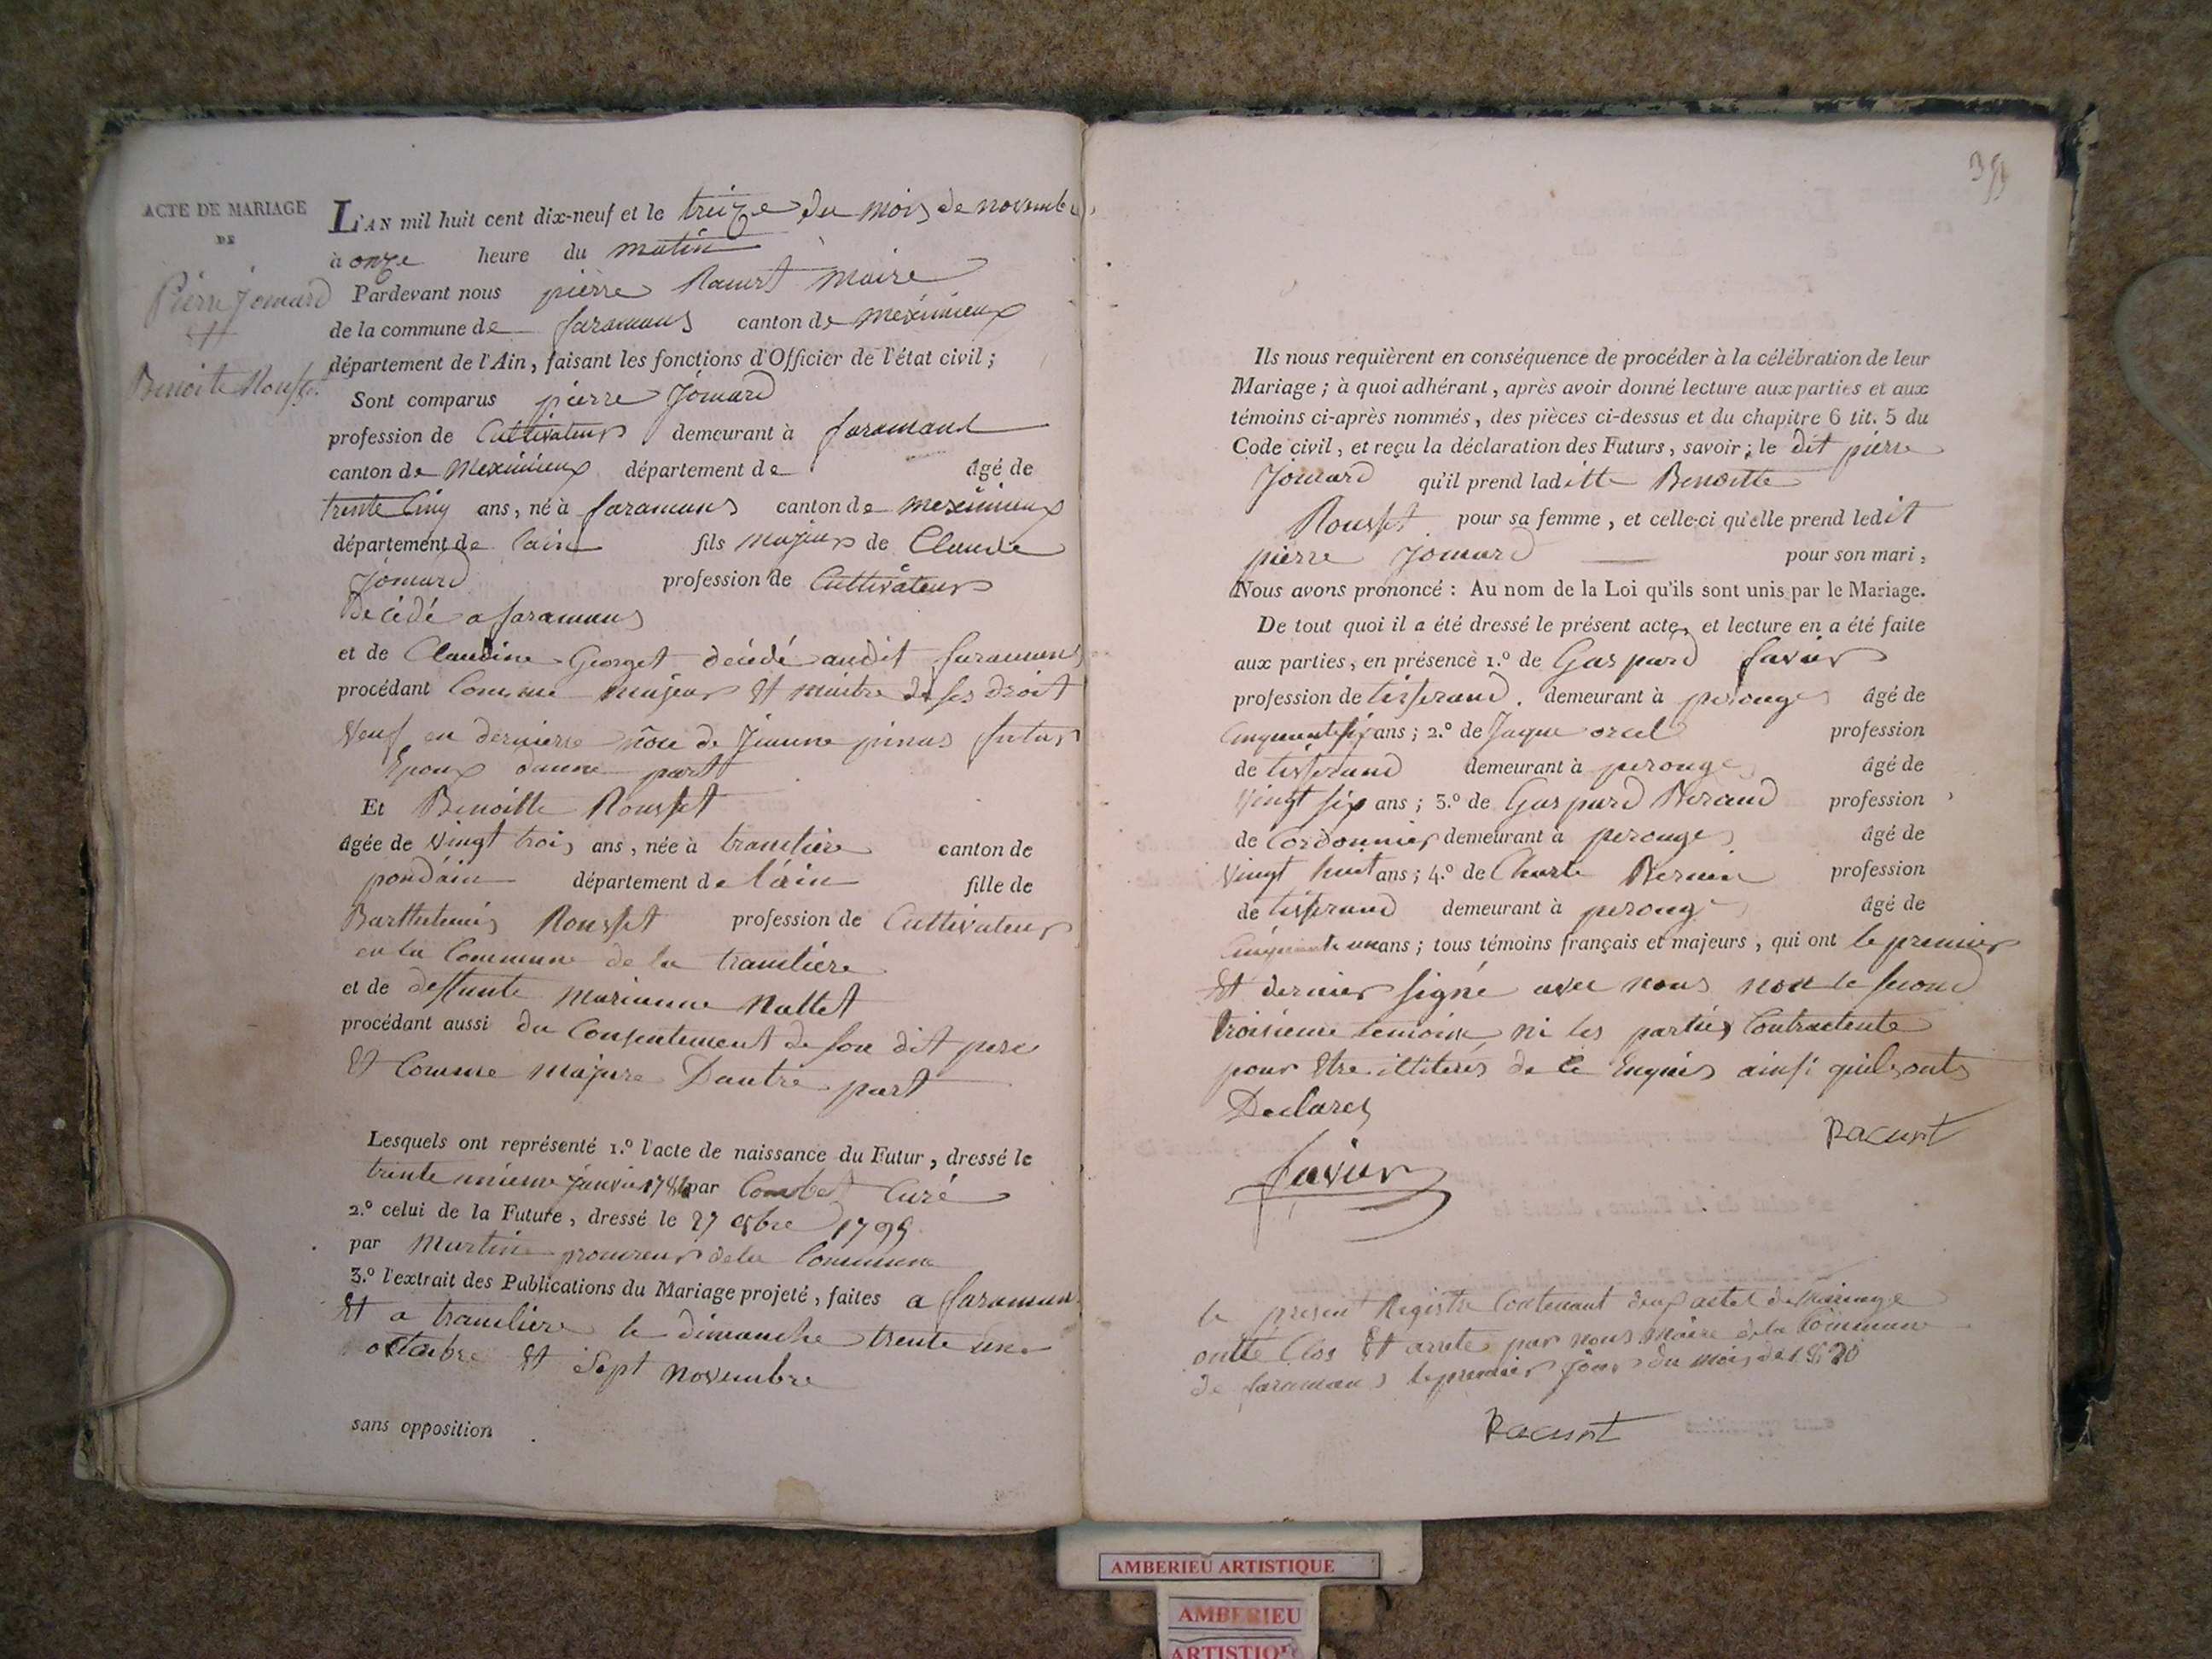 ACTE DE MARIAGE
DE
Pierre Jomard
Et
Benoite Rousset
L'AN mil huit cent dix-neuf et le treize du mois de novembre
à onze heure du matin
Pardevant nous pierre Racurt Maire
de la commune de faramans canton de meximieux
département de l'Ain, faisant les fonctions d'Officier de l'état civil ;
Sont comparus pierre Jomard
profession de Cultivateur demeurant à faramans
canton de Meximieux département de âgé de
trente Cinq ans, né à faramans canton de meximieux
département de lain fils majeur de Claude
Jomard profession de Cultivateur
Décédé a faramans
et de Claudine Georget décédé audit faramans
procédant Comme majeur Et maitre de ses droit
Veuf en derniere nôce de Jeanne pinas futur
Epoux daune part
Et Benoitte Rousset
âgée de Vingt trois ans, née à tramliere canton de
pondain département de l'ain fille de
Barthelemis Rousset profession de Cultivateur
en la Commune de la tramliere
et de deffunte marianne Nallet
procédant aussi du Consentement de son dit pere
Et Comme majure Dautre part
Lesquels ont représenté 1.º l'acte de naissance du Futur, dressé le
trente unieme janvier 178 par Combet Curé
2.º celui de la Future, dressé le 27 9bre 1795
par Martin procureur de la Commune
3.º l'extrait des Publications du Mariage projeté, faites a faramans
Et a tramliere le dimanche trente un
octobre Et Sept novembre
sans opposition
Ils nous requièrent en conséquence de procéder à la célébration de leur
Mariage ; à quoi adhérant, après avoir donné lecture aux parties et aux
témoins ci-après nommés, des pièces ci-dessus et du chapitre 6 tit. 5 du
Code civil, et reçu la déclaration des Futurs, savoir ; le dit pierre
Jomard qu'il prend laditte Benoitte
Rousset pour sa femme, et celle-ci qu'elle prend ledit
pierre Jomard pour son mari,
Nous avons prononcé : Au nom de la Loi qu'ils sont unis par le Mariage.
De tout quoi il a été dressé le présent acte, et lecture en a été faite
aux parties, en présence 1.º de Gaspard favier
profession de tisserand . demeurant à perouges âgé de
Cinquante six ans ; 2.º de Jaque orcel profession
de tisserand demeurant à perouges âgé de
Vingt six ans ; 3.º de Gaspard Neraud profession
de Cordonnier demeurant à perouges âgé de
Vingt huit ans ; 4.º de Charle Bernin profession
de tisserand demeurant à perouge âgé de
Cinquante un ans ; tous témoins français et majeurs, qui ont le premier
Et dernier signé avec nous non le second
troisieme temoin ni les parties Contractente
pour Etre illiterés de ce Enquis ainsi quils onts
Declares
Racurt
favier
le present Registre Contenant deux actes de Mariage
Clos Et arrete par nous Maire de la Commune
de faramans le premier jour du mois de 1820
Racurt
AMBERIEU ARTISTIQUE
AMBERIEU
ARTISTIQUE